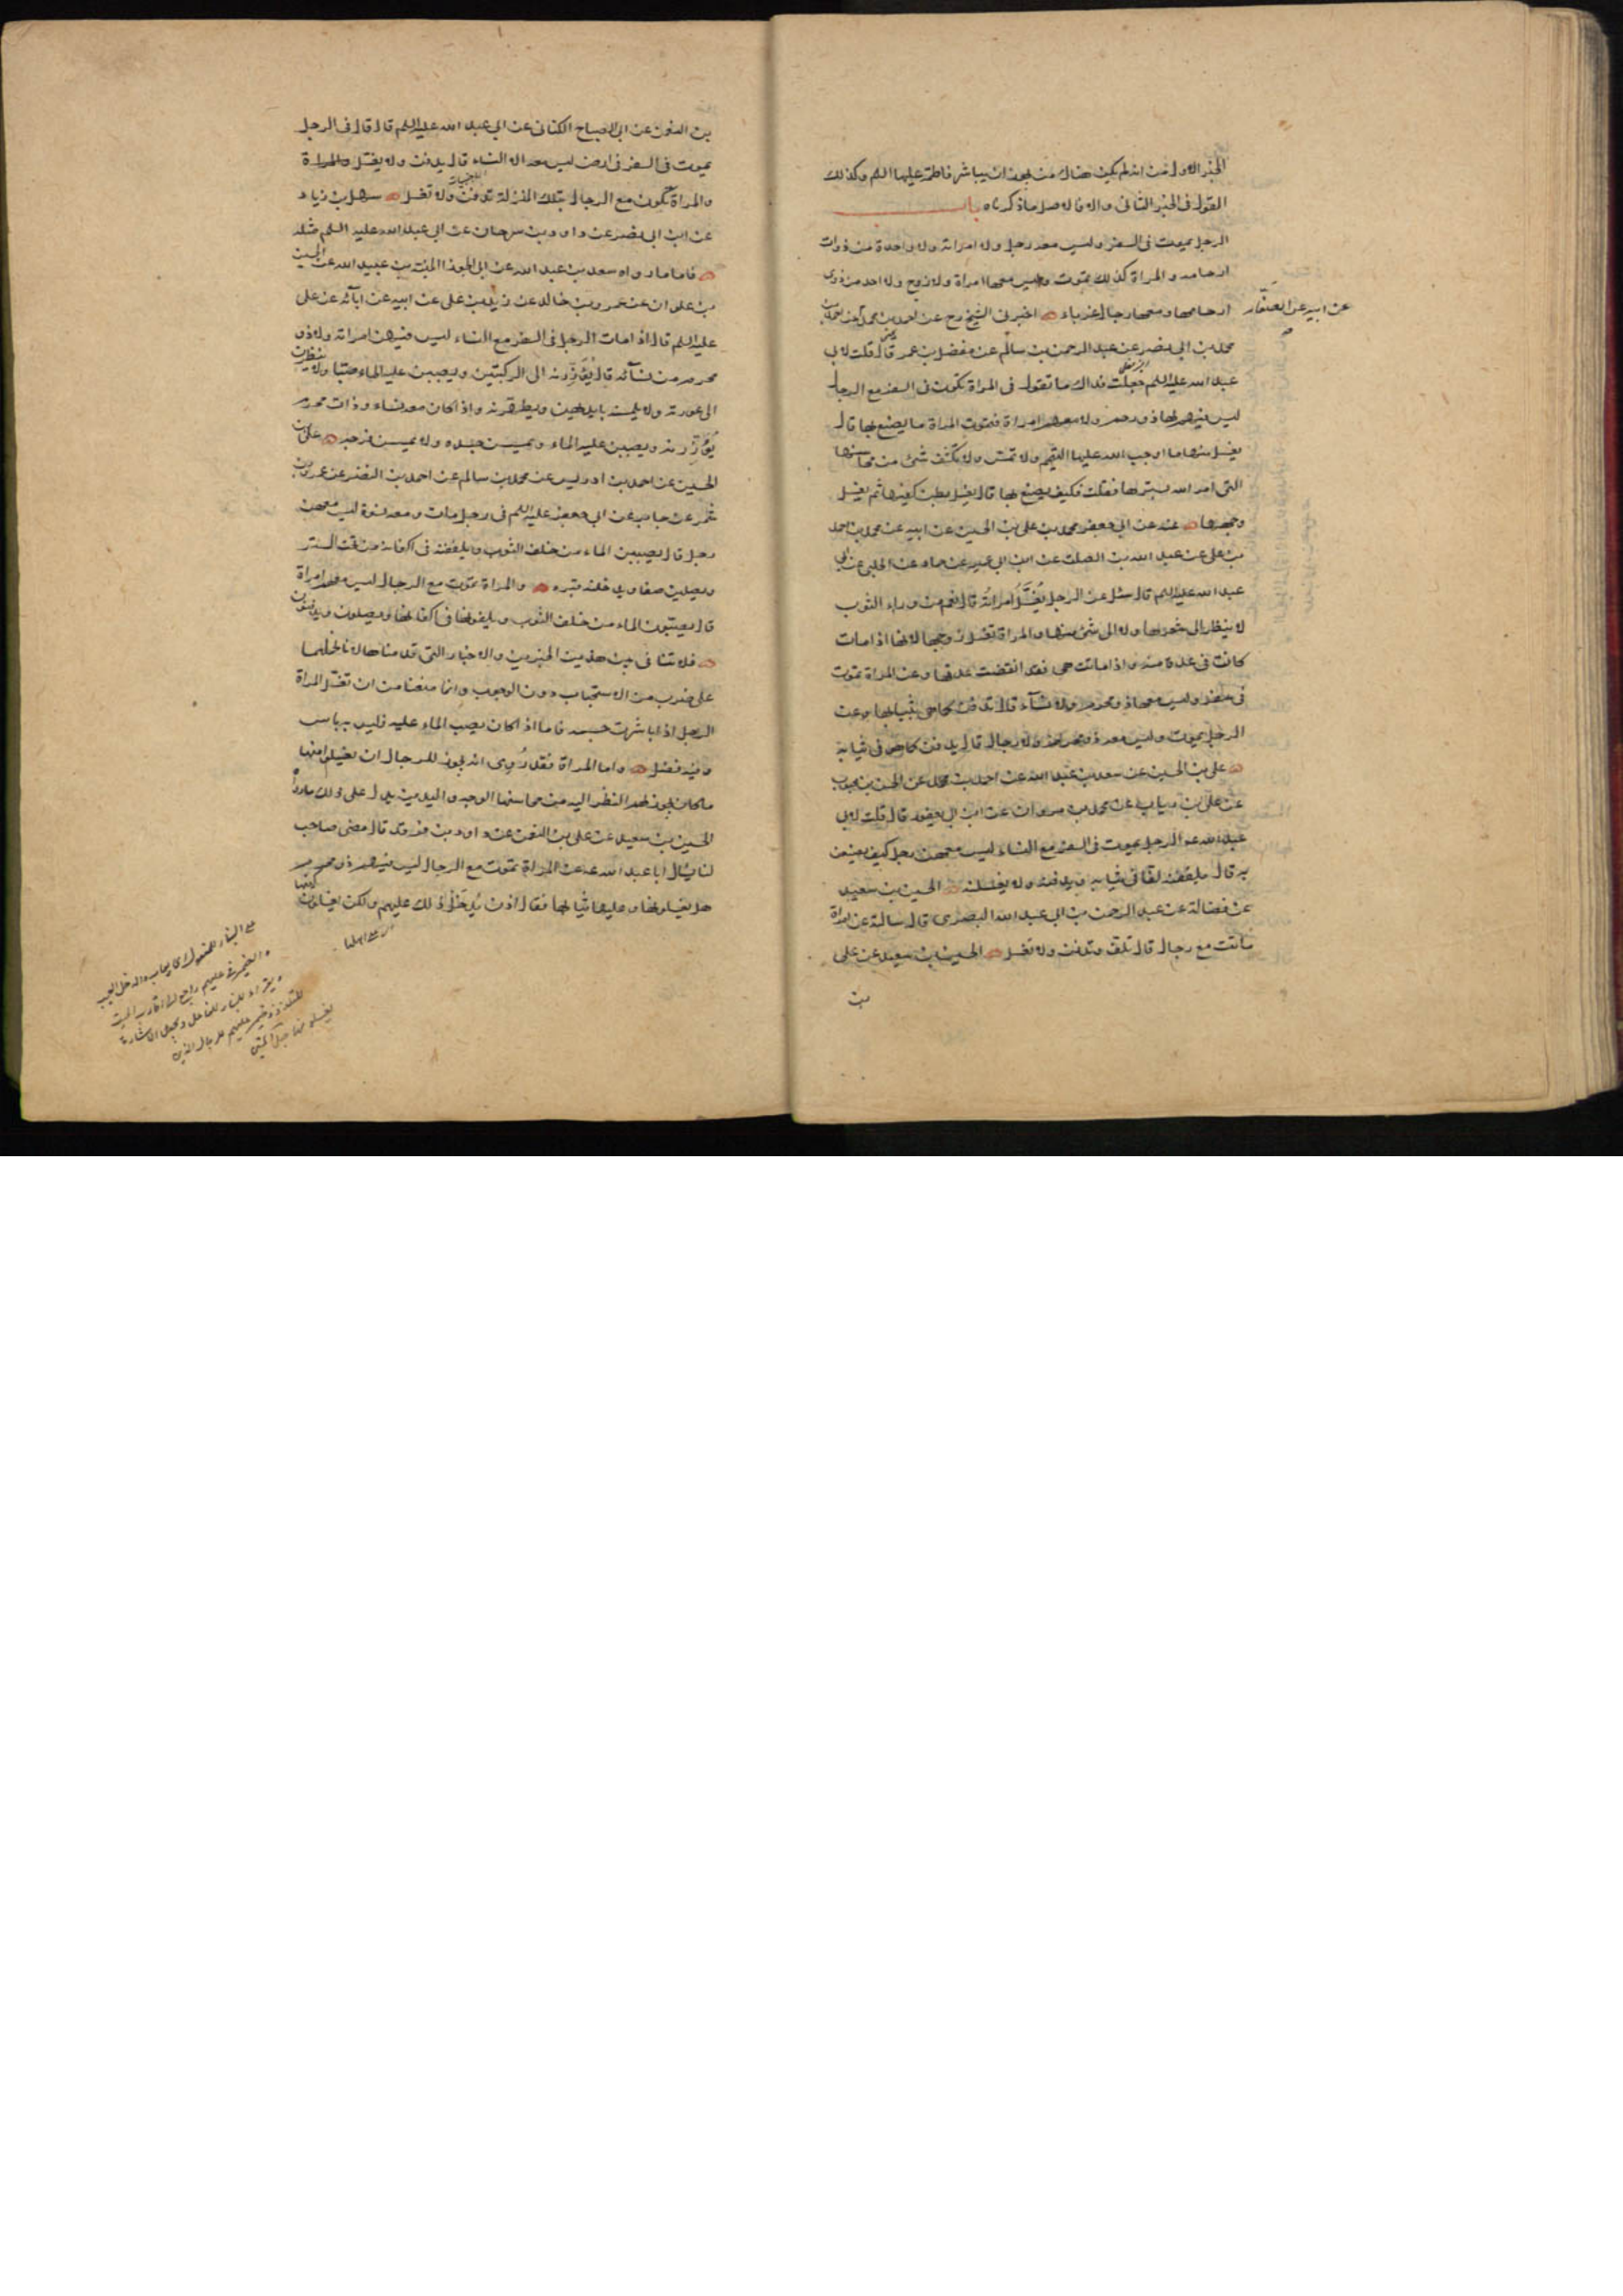 الخبر الاول من انه لم يكن هناك من يجوز ان يباشر فاطمة عليها السلم وكذلك
القول في الخبر الثاني والاه فالاصل ما ذكرناه باب
الرجل يموت في السفر وليس معه رجل ولا امراته ولا واحدة من ذوات
ارحامه والمراة كذلك تموت وليس معها امراة ولا زوج ولا احد من ذوي
ارحامها ومعها رجال غرباء اخبرني الشيخ رح عن احمد بن محمد عن احمد بن
عن ابيه عن الصفار
محمد بن ابي نصر عن عبد الرحمن بن سالم عن مفضل بن عمر قال قلت لابي
عبد الله عليه السلم جعلت فداك ما تقول في المراة تكون في السفر مع الرجال
ليس فيهم لها ذو رحم ولا معهم امراة فتموت المراة ما يصنع بها قال
يغسل منها ما اوجب الله عليها التيمم ولا تمس ولا يكشف شئ من محاسنها
التي امر الله بسترها فقلت فكيف يصنع بها قال يغسل بطن كفيها ثم يغسل
وجهها عنه عن ابي جعفر محمد بن علي بن الحسين عن ابيه عن محمد بن احمد
بن علي عن عبد الله بن الصلت عن ابن ابي عمير عن حماد عن الحلبي عن ابي
عبد الله عليه السلم قال سئل عن الرجل يغسل امراته قال نعم من وراء الثوب
لا ينظر الى شعرها ولا الى شئ منها والمراة تغسل زوجها لانها اذا مات
كانت في عدة منه واذا ماتت هي فقد انقضت عدتها وعن المراة تموت
في سفر وليس معها ذو محرم ولا نسآء قال تدفن كما هي بثيابها وعن
الرجل يموت وليس معه ذو محرم ولا رجال قال يدفن كما هو في ثيابه
علي بن الحسين عن سعد بن عبد الله عن احمد بن محمد عن الحسن بن محبوب
عن علي بن رياب عن محمد بن مروان عن ابن ابي يعفور قال قلت لابي
عبد الله ع الرجل يموت في السفر مع النساء ليس معهن رجل كيف يصنعن
به قال يلففنه لفا في ثيابه ويدفنه ولا يغسلنه الحسين بن سعيد
عن فضالة عن عبد الرحمن بن ابي عبد الله البصري قال سالته عن امراة
ماتت مع رجال قال تلف وتدفن ولا تغسل الحسين بن سعيد عن علي
بن
بن النعمن عن ابي الصباح الكناني عن ابي عبد الله عليه السلم قال قال في الرجل
يموت في السفر في ارض ليس معه الا النساء قال يدفن ولا يغسل والمراة
والمراة تكون مع الرجال بتلك المنزلة تدفن ولا تغسل سهل بن زياد
عن ابن ابي نصر عن داود بن سرحان عن ابي عبد الله عليه السلم مثله
فاما ما رواه سعد بن عبد الله عن ابي الجوزا المنبه بن عبيد الله عن الحسين
بن علوان عن عمرو بن خالد عن زيد بن علي عن ابيه عن ابآئه عن علي
عليه السلم قال اذا مات الرجل في السفر مع النساء ليس فيهن امراته ولا ذو
محرم من نسآئه قال يؤزرنه الى الركبتين ويصببن عليه الماء صبا ولا ينظرن
الى عورته ولا يلمسنه بايديهن ويطهرنه واذا كان معه نساء وذات محرم
يؤزرنه ويصببن عليه الماء ويمسسن جسده ولا يمسسن فرجه علي بن
الحسين عن احمد بن ادريس عن محمد بن سالم عن احمد بن النضر عن عمرو بن
شمر عن جابر عن ابي جعفر عليه السلم في رجل مات ومعه نسوة ليس معهن
رجل قال يصببن الماء من خلف الثوب ويلففنه في اكفانه من تحت الستر
ويصلين صفا ويدخلنه قبره والمراة تموت مع الرجال ليس معهم امراة
قال يصبون الماء من خلف الثوب ويلفونها في اكفانها ويصلون ويدفنون
فلا تنافي بين هذين الخبرين والاخبار التي قدمناها لانا نحملهما
على ضرب من الاستحباب دون الوجوب وانما منعنا من ان تغسل المراة
الرجل اذا باشرت جسمه فاما اذا كان يصب الماء عليه فليس به باس
وفيه فضل واما المراة فقد روى انه يجوز للرجال ان يغسلوا منها
ما كان يجوز لهم النظر اليه من محاسنها الوجه واليدين يدل على ذلك ما رواه
الحسين بن سعيد عن علي بن النعمن عن داود بن فرقد قال مضى صاحب
لنا يسال ابا عبد الله ع عن المراة تموت مع الرجال ليس فيهم ذو محرم
هل يغسلونها وعليها ثيابها فقال اذن يدخل ذلك عليهم ولكن يغسلون كفيها